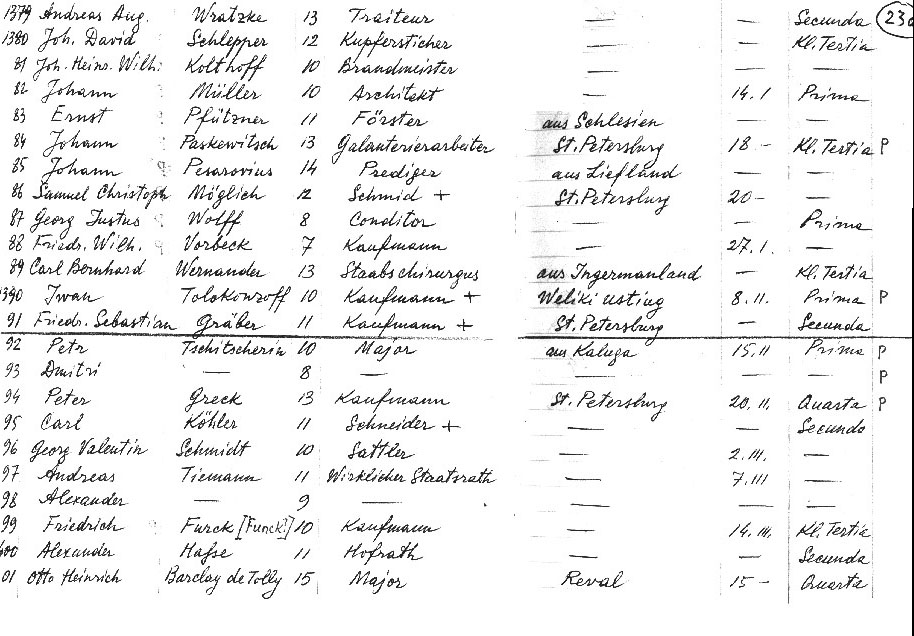 1379 Andreas Aug. Wratzke 13 Traiteur — — Secunda 230
1380 Joh. David Schlepper 12 Kupferstecher — — Kl. Tertia
81 Joh. Heinr. Wilh. Kolthoff 10 Brandmeister — — —
82 Johann Müller 10 Architekt — 14.1 Prima
83 Ernst Pfützner 11 Förster aus Schlesien — —
84 Johann Paskewitsch 13 Galanteriearbeiter St. Petersburg 18 — Kl. Tertia P
85 Johann Pesarovius 14 Prediger aus Liefland — —
86 Samuel Christoph Möglich 12 Schmid + St. Petersburg 20 — —
87 Georg Justus Wolff 8 Conditor — — Prima
88 Friedr. Wilh. Vorbeck 7 Kaufmann — 27.1. —
89 Carl Bernhard Wernander 13 Staabschirurgus aus Ingermanland — Kl. Tertia
1390 Iwan Tolokonzoff 10 Kaufmann + Weliki Ustiug 8.11. Prima P
91 Friedr. Sebastian Gräber 11 Kaufmann + St. Petersburg — Secunda
92 Petr Tschitscherin 10 Major aus Kaluga 15.11 Prima P
93 Dmitri — 8 — — — — P
94 Peter Greck 13 Kaufmann St. Petersburg 20.11. Quarta P
95 Carl Köhler 11 Schneider + — — Secunda
96 Georg Valentin Schmidt 10 Sattler — 2.III. —
97 Andreas Tiemann 11 Wirklicher Staatsrath — 7.III —
98 Alexander — 9 — — — —
99 Friedrich Furck [Funck!] 10 Kaufmann — 14.III. Kl. Tertia
400 Alexander Hasse 11 Hofrath — — Secunda
01 Otto Heinrich Barclay de Tolly 15 Major Reval 15 — Quarta